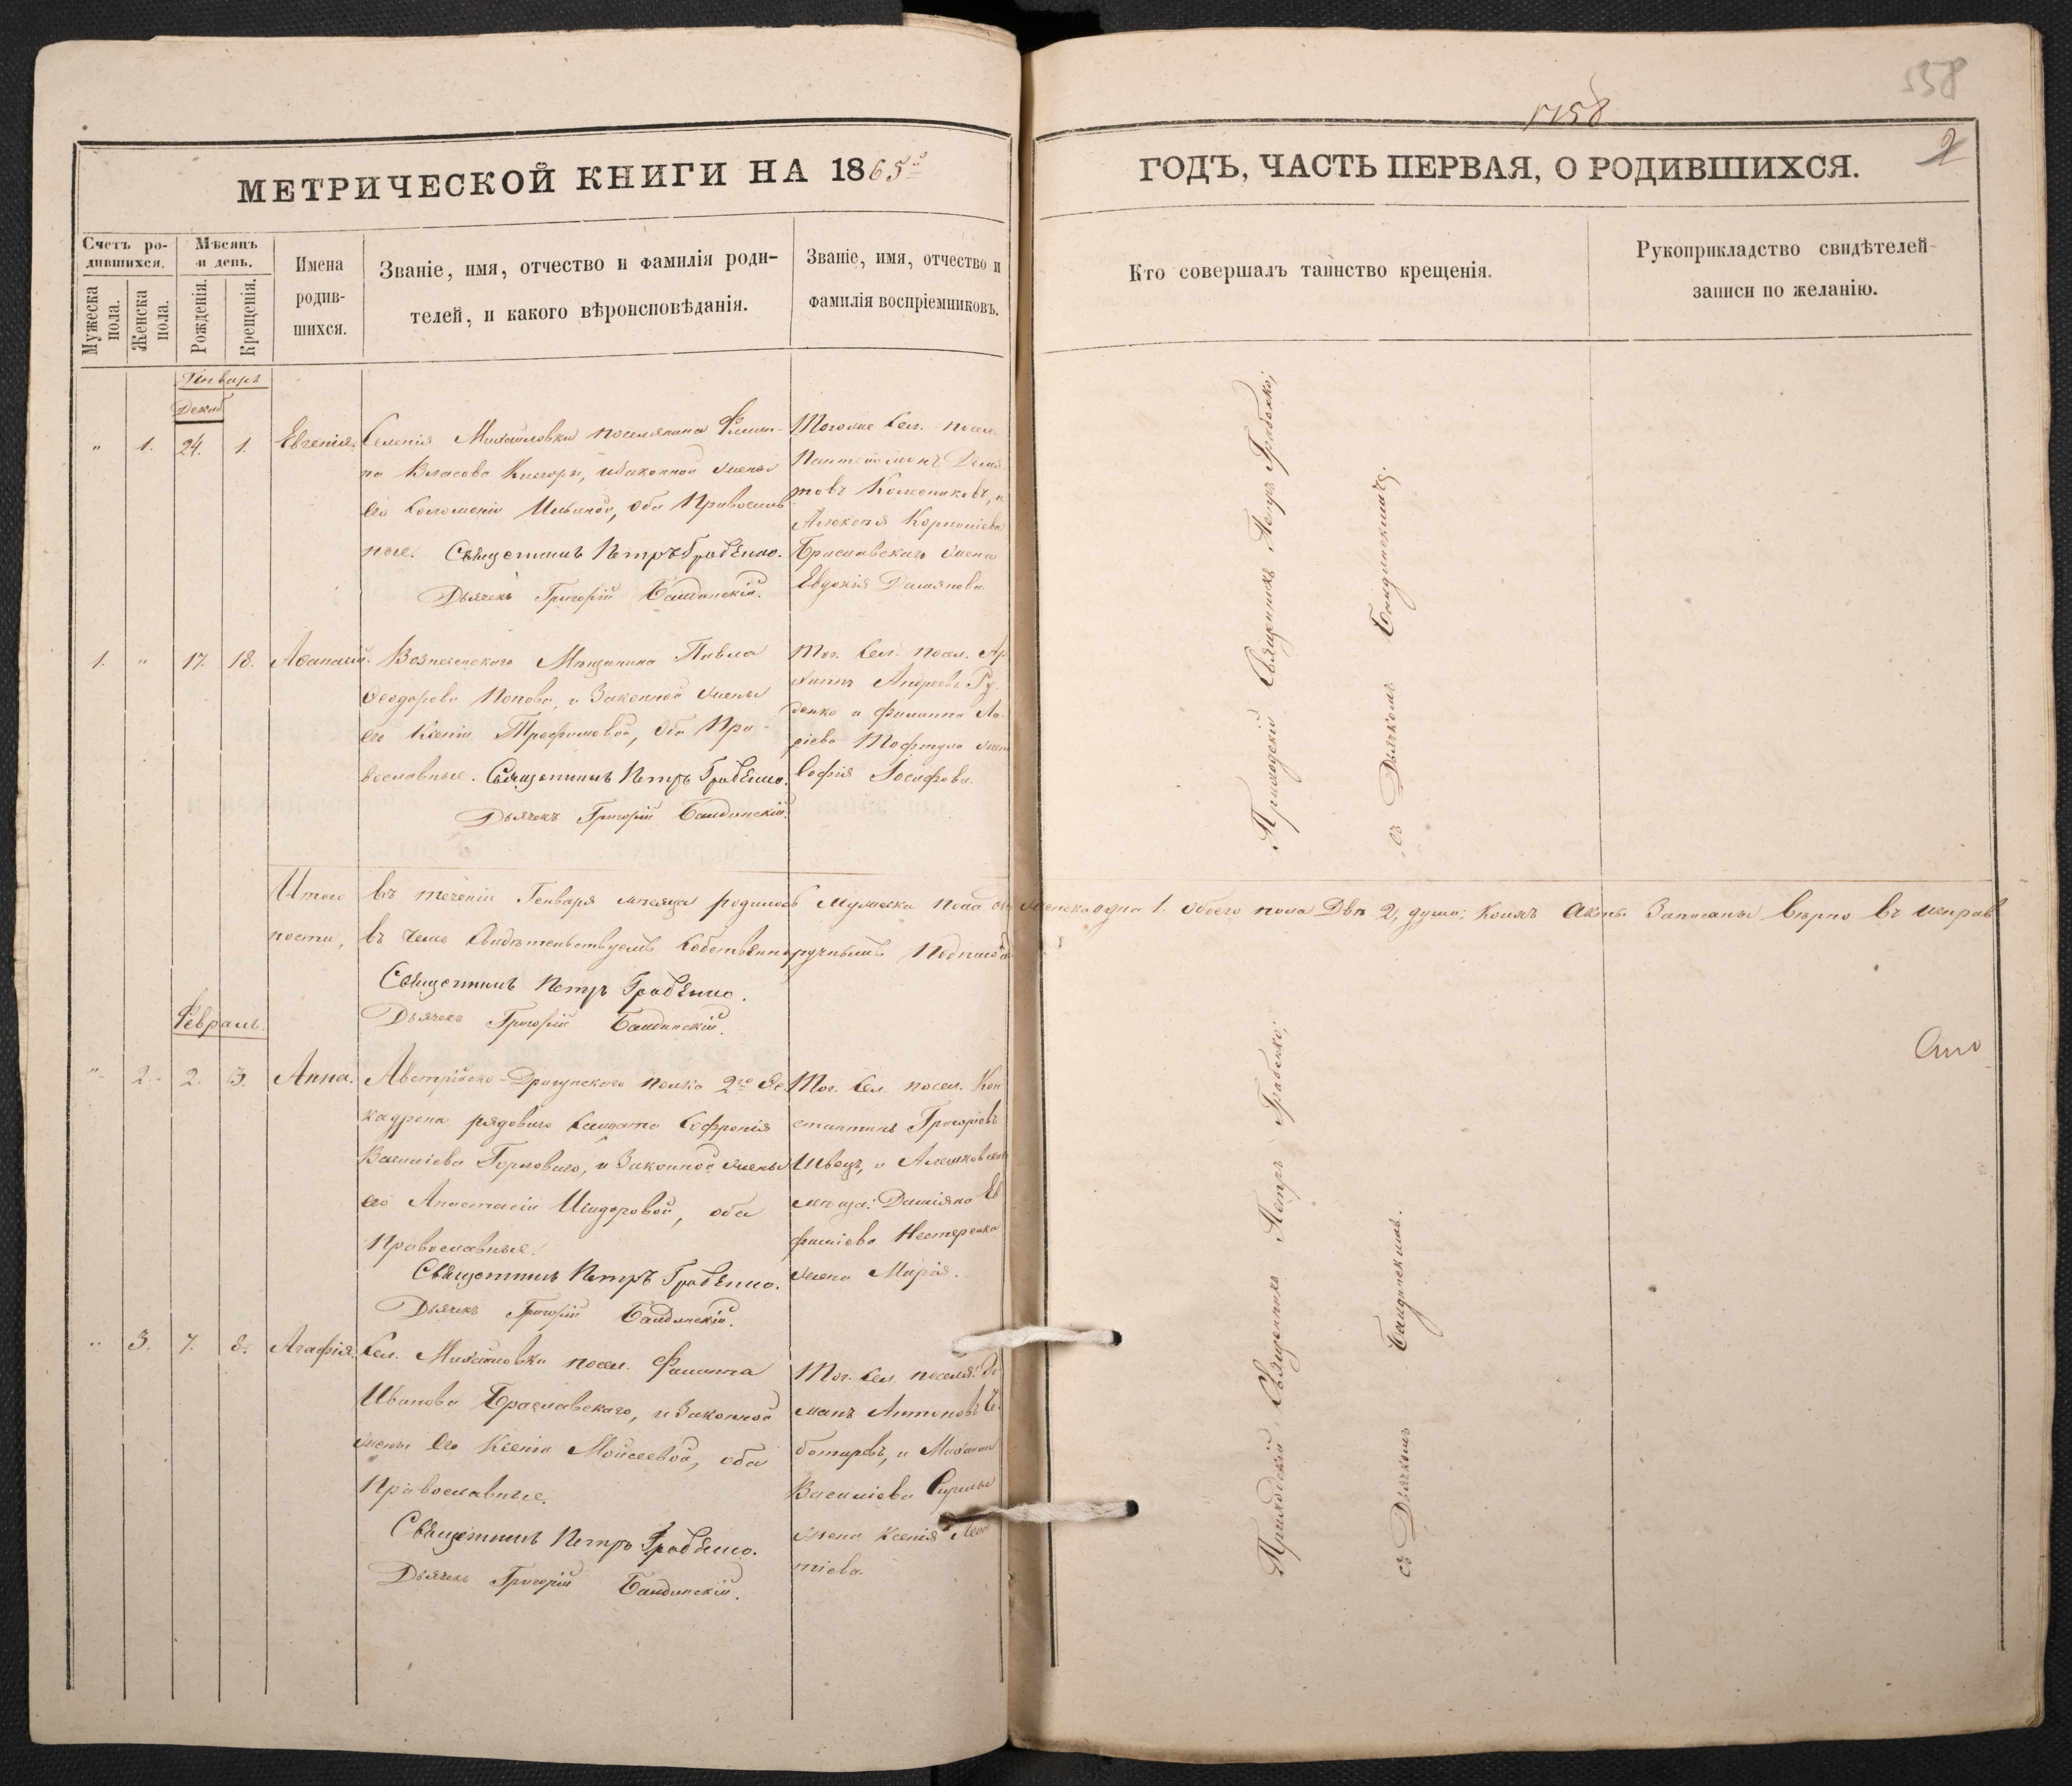 558
1758
2
МЕТРИЧЕСКОЙ КНИГИ НА 1865й
ГОДЪ, ЧАСТЬ ПЕРВАЯ, О РОДИВШИХСЯ.
Счетъ ро-
дившихся.
Мужеска
пола.
Женска
пола.
Мѣсяцъ
и день.
Рожденія.
Крещенія.
Имена
родив-
шихся.
Званіе, имя, отчество и фамилія роди-
телей, и какого вѣроисповѣданія.
Званіе, имя, отчество и
фамилія воспріемниковъ.
Кто совершалъ таинство крещенія.
Рукоприкладство свидѣтелей
записи по желанію.
Генварь
Декаб
" 1. 24. 1. Евгенія
Селенія Михайловки поселянина Филип-
па Власова и законной жены
его Соломоніи Ильиной, оба Православ
ные. Священникъ Петръ Грабенко.
Дьячекъ Григорій Балдинскій.
Тогоже Сел. посел.
Пантелимонъ
товъ Колесниковъ, и
Алексѣя Корниліева
Браславскаго жена
Евдокія Дамянова.
1. " 17. 18. Аѳанасій.
Вознесенскаго Мѣщанина Павла
Ѳеодорова Попова, и Законной жены
его Ксеніи Трофимовой, Оба Пра-
вославные. Священникъ Петръ Грабенко.
Дьячекъ Григорій Балдинскій.
Тог. Сел. посел. Ар
хиппъ Андреевъ Ру-
денко и Филиппа Ла-
ріева Тофтула жена
Софія Іосифова.
Приходскій Священникъ Петръ Грабенко;
съ Дьячкомъ Балдинскимъ.
Итого въ теченіи Генваря мѣсяца родилось Мужеска пола одинъ женска одна 1. Обоего пола Двѣ 2, душа; Коихъ Акты Записаны вѣрно въ исправ
ности, въ чемъ Свидѣтельствуемъ Собственноручнымъ Подписомъ
Священникъ Петръ Грабенко.
Дьячекъ Григорій Балдинскій.
Февраль.
" 2. 2. 3. Анна.
Австрійско-Драгунскаго полка 2го Эс-
кадрона рядоваго Солдата Софронія
Василіева Горловаго, и Законной жены
его Анастасіи Исидоровой, оба
Православные.
Священникъ Петръ Грабенко.
Дьячекъ Григорій Балдинскій.
Тог. Сел. посел. Кон
стантинъ Григоріевъ
Швецъ, и Алешковскаго
мѣща: Даміяна Ев
фиміева Нестеренка
жена Марія.
" 3. 7. 8. Агафія.
Сел. Михайловки посел. Филиппа
Иванова Браславскаго, и Законной
жены Его Ксеніи Моисеевой, оба
Православные.
Священникъ Петръ Грабенко.
Дьячекъ Григорій Балдинскій.
Тог. Сел. поселя: Ро-
манъ Антоновъ Че-
ботаревъ, и Михаила
Василіева
жена Ксенія Леон
тіева.
Приходскій Священникъ Петръ Грабенко;
съ Дьячкомъ Балдинскимъ.